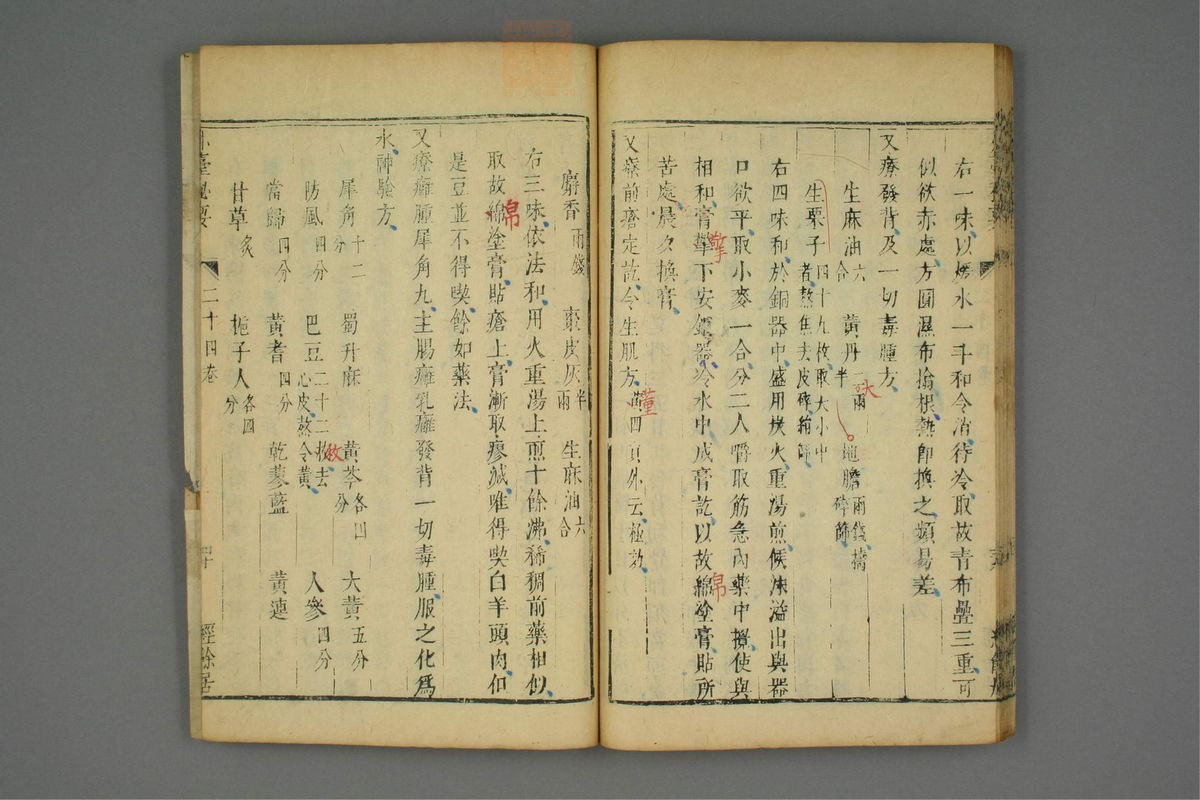 右一味以煖水一斗和令消待冷取故青布疊三重可
似欲赤處方圓濕布搨根熱即換之頻易差
又療發背及一切毒腫方
生麻油六合 黃丹一兩半 地膽兩錢擣碎篩
生栗子四十九枚取大小中者熬焦去皮碎絹篩
右四味和於銅器中盛用炭火重湯煎候沫溢出與器
口欲平取小麥一合分二人嚼取筋急內藥中攪使與
相和膏擎下安銀器冷水中成膏訖以故綿塗膏貼所
苦處晨夕換膏
又療前瘡定訖令生肌方
麝香兩錢 棗皮灰半兩 生麻油六合
右三味依法和用火重湯上煎十餘沸稀稠前藥相似
取故綿塗膏貼瘡上膏漸取瘳減唯得喫白羊頭肉仰
是豆並不得喫餘如藥法
又療癰腫犀角丸主腸癰乳癰發背一切毒腫服之化爲
水神驗方
犀角十二分 蜀升麻 黃芩各四分 大黃五分
防風四分 巴豆二十二枚去心皮熬令黃 人參四分
當歸四分 黃耆四分 乾蓼藍 黃連
甘草炙 梔子人各四分
二十四卷
經餘居